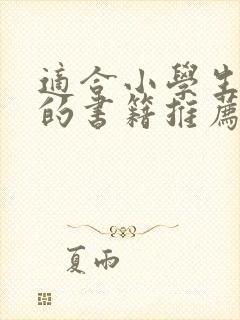 適合小學生
的書籍推薦
夏雨